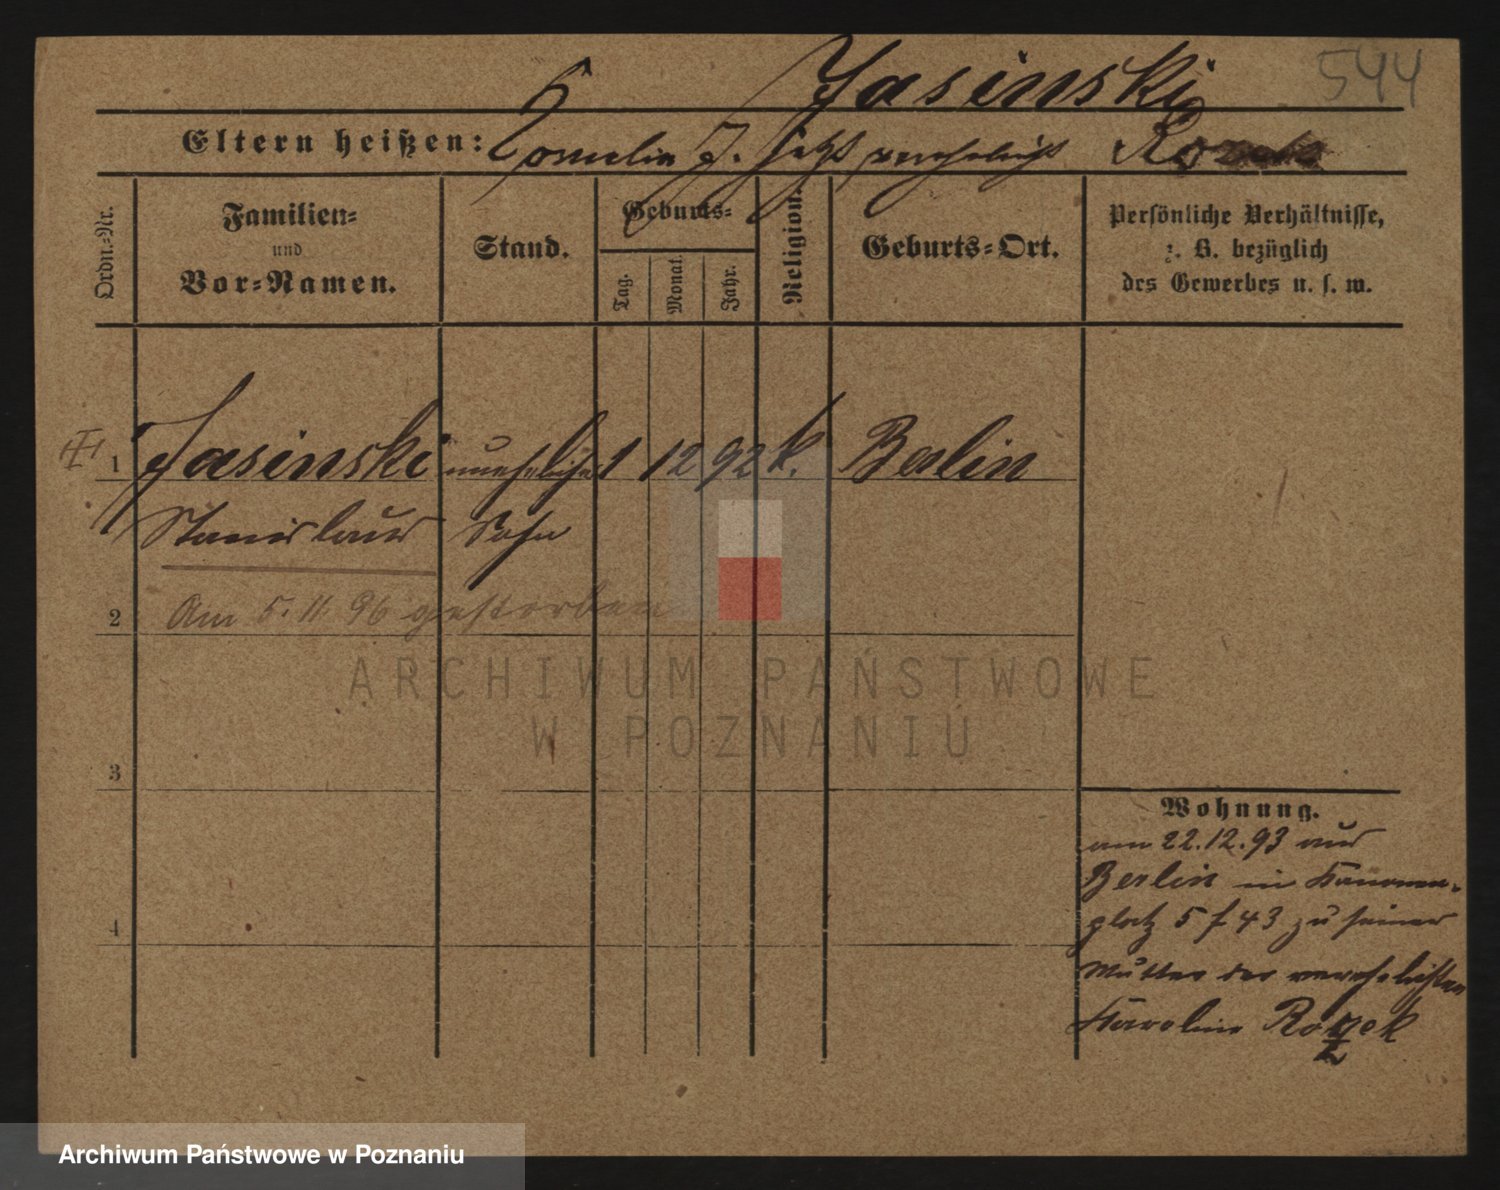 Jasinski 544
Eltern heißen: J. jetzt verehelicht
Ordn.=Nr.
Familien=
und
Vor=Namen.
Stand.
Geburts=
Tag.
Monat.
Jahr.
Religion.
Geburts=Ort.
Persönliche Verhältnisse,
z. B. bezüglich
des Gewerbes u. s. w.
1 Jasinski uneheliche 1 12 92 k. Berlin
Stanislaus Sohn
2 Am 5. 11. 96 gestorben
ARCHIWUM PAŃSTWOWE
W POZNANIU
3
Wohnung.
am 22.12.93 aus
Berlin in Kanonen-
platz 5 f 43 zu seiner
4
Mutter der verehelichten
Karoline Rozek
Archiwum Państwowe w Poznaniu